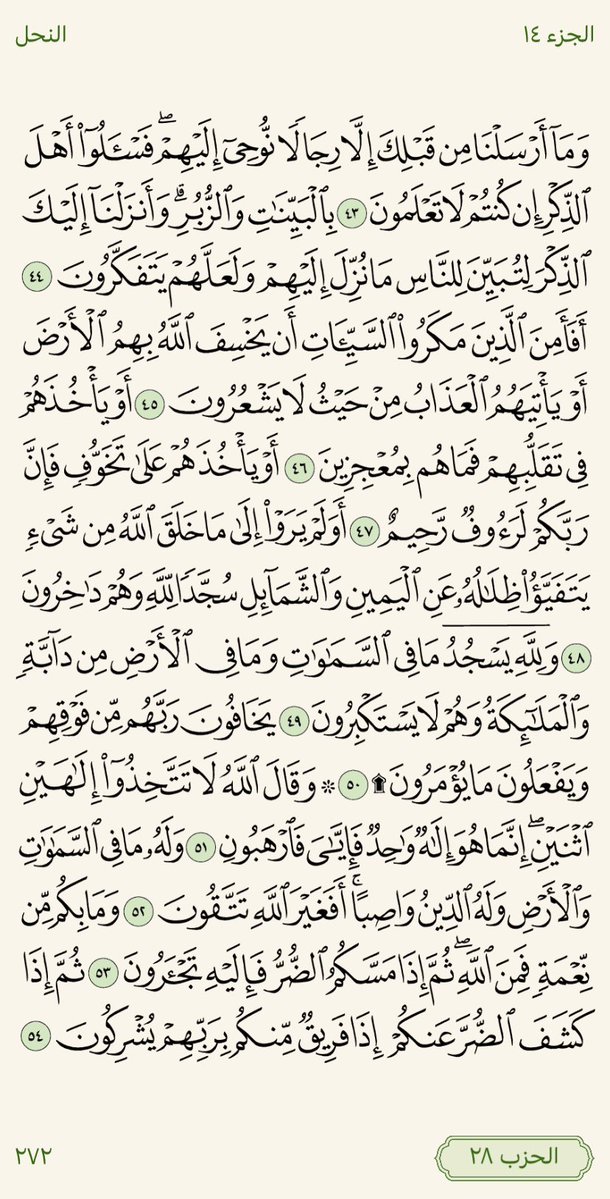 الجزء ١٤
النحل
وَمَآ أَرْسَلْنَا مِن قَبْلِكَ إِلَّا رِجَالًا نُّوحِىٓ إِلَيْهِمْ ۖ فَسْـَٔلُوٓا۟ أَهْلَ
ٱلذِّكْرِ إِن كُنتُمْ لَا تَعْلَمُونَ ٤٣ بِٱلْبَيِّنَـٰتِ وَٱلزُّبُرِ ۗ وَأَنزَلْنَآ إِلَيْكَ
ٱلذِّكْرَ لِتُبَيِّنَ لِلنَّاسِ مَا نُزِّلَ إِلَيْهِمْ وَلَعَلَّهُمْ يَتَفَكَّرُونَ ٤٤
أَفَأَمِنَ ٱلَّذِينَ مَكَرُوا۟ ٱلسَّيِّـَٔاتِ أَن يَخْسِفَ ٱللَّهُ بِهِمُ ٱلْأَرْضَ
أَوْ يَأْتِيَهُمُ ٱلْعَذَابُ مِنْ حَيْثُ لَا يَشْعُرُونَ ٤٥ أَوْ يَأْخُذَهُمْ
فِى تَقَلُّبِهِمْ فَمَا هُم بِمُعْجِزِينَ ٤٦ أَوْ يَأْخُذَهُمْ عَلَىٰ تَخَوُّفٍ فَإِنَّ
رَبَّكُمْ لَرَءُوفٌ رَّحِيمٌ ٤٧ أَوَلَمْ يَرَوْا۟ إِلَىٰ مَا خَلَقَ ٱللَّهُ مِن شَىْءٍ
يَتَفَيَّؤُا۟ ظِلَـٰلُهُۥ عَنِ ٱلْيَمِينِ وَٱلشَّمَآئِلِ سُجَّدًا لِّلَّهِ وَهُمْ دَٰخِرُونَ
٤٨ وَلِلَّهِ يَسْجُدُ مَا فِى ٱلسَّمَـٰوَٰتِ وَمَا فِى ٱلْأَرْضِ مِن دَآبَّةٍ
وَٱلْمَلَـٰٓئِكَةُ وَهُمْ لَا يَسْتَكْبِرُونَ ٤٩ يَخَافُونَ رَبَّهُم مِّن فَوْقِهِمْ
وَيَفْعَلُونَ مَا يُؤْمَرُونَ ۩ ٥٠ ۞ وَقَالَ ٱللَّهُ لَا تَتَّخِذُوٓا۟ إِلَـٰهَيْنِ
ٱثْنَيْنِ ۖ إِنَّمَا هُوَ إِلَـٰهٌ وَٰحِدٌ فَإِيَّـٰىَ فَٱرْهَبُونِ ٥١ وَلَهُۥ مَا فِى ٱلسَّمَـٰوَٰتِ
وَٱلْأَرْضِ وَلَهُ ٱلدِّينُ وَاصِبًا ۚ أَفَغَيْرَ ٱللَّهِ تَتَّقُونَ ٥٢ وَمَا بِكُم مِّن
نِّعْمَةٍ فَمِنَ ٱللَّهِ ۖ ثُمَّ إِذَا مَسَّكُمُ ٱلضُّرُّ فَإِلَيْهِ تَجْـَٔرُونَ ٥٣ ثُمَّ إِذَا
كَشَفَ ٱلضُّرَّ عَنكُمْ إِذَا فَرِيقٌ مِّنكُم بِرَبِّهِمْ يُشْرِكُونَ ٥٤
الحزب ٢٨
٢٧٢